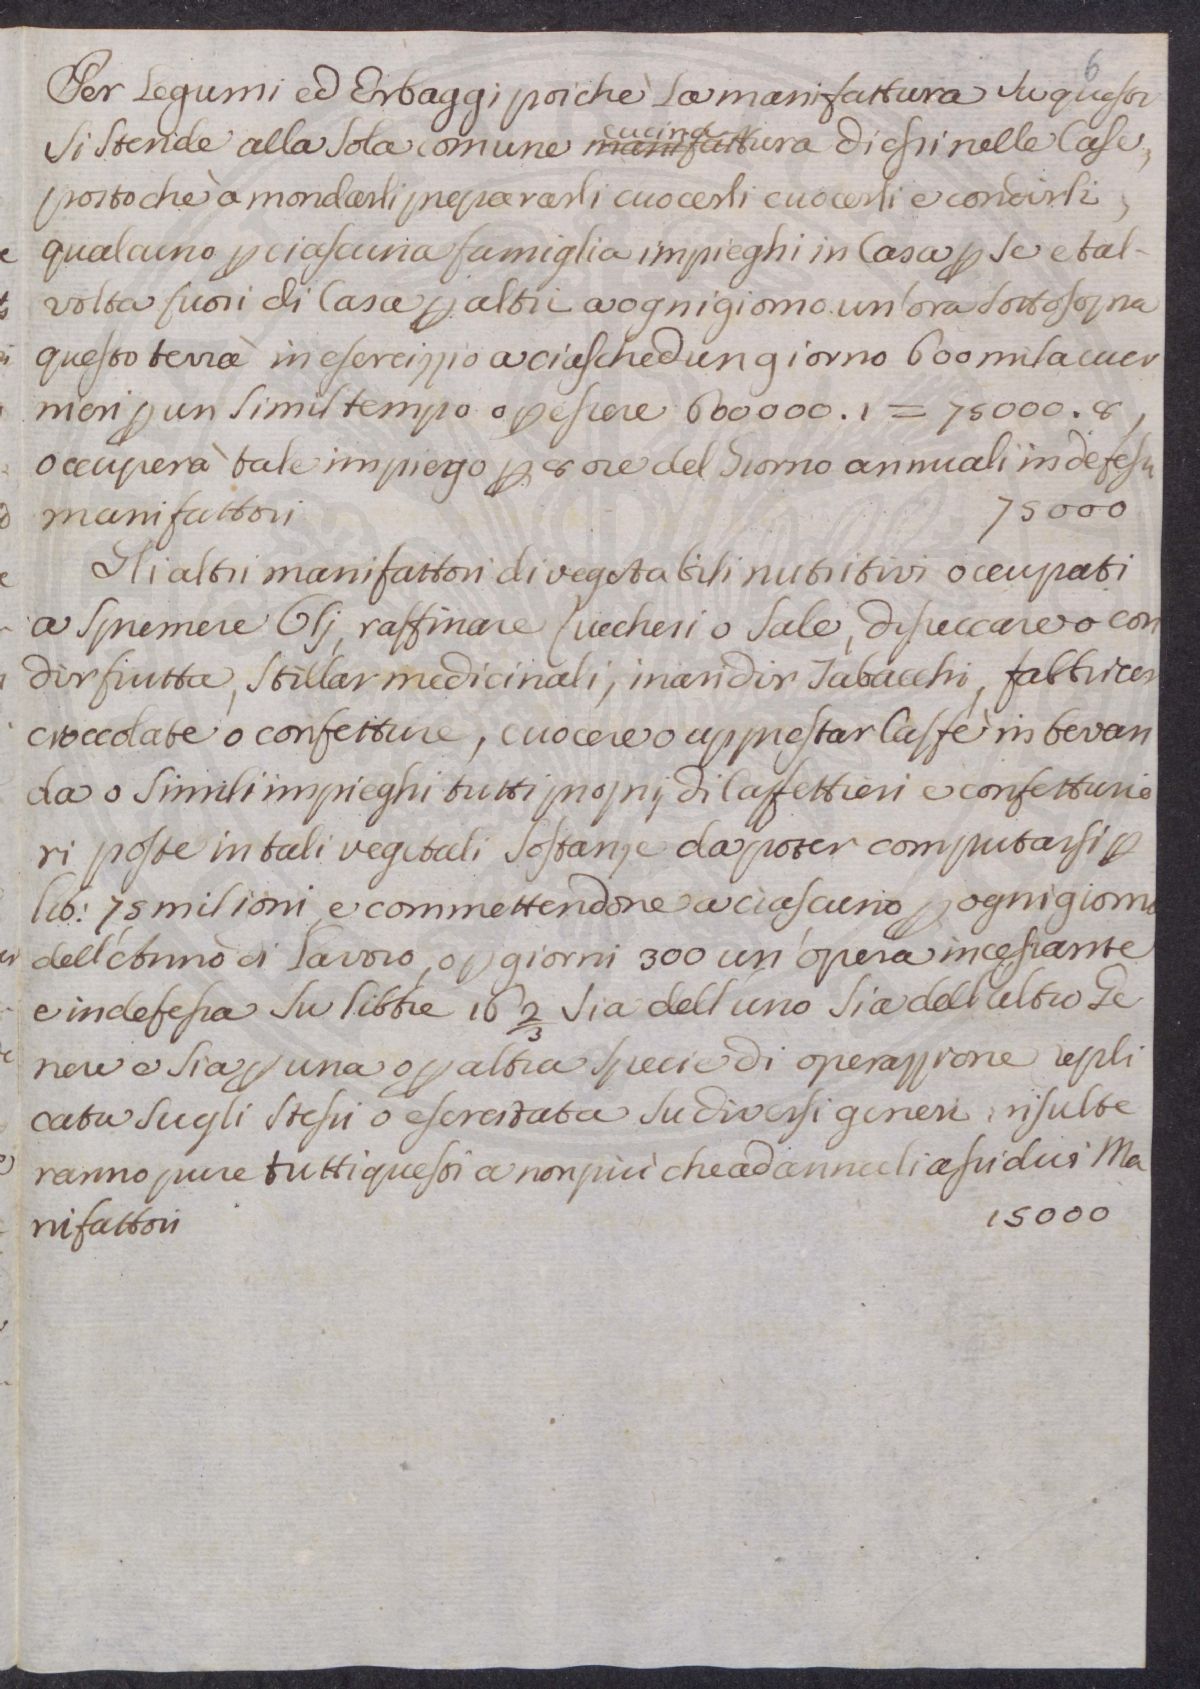 6
Per Legumi ed Erbaggi poichè la manifattura su questi
si stende alla sola comune cucina manifattura di essi nelle Case,
posto chè à mondarli prepararli cuocerli cuocerli e condirli,
qualcuno p ciascuna famiglia impieghi in Casa p se e tal-
volta fuori di Casa p altri a ogni giorno un'ora sottosopra
questo terrà in esercizzio a ciaschedun giorno 600 mila
meri p un simil tempo o p essere 600000. 1 = 75000. 8,
occuperà tale impiego p 8 ore del Giorno annuali indefessi
manifattori 75000
Gli altri manifattori di vegetabili nutritivi occupati
a spremere Olj, raffinare Zuccheri o Sale, diseccare o con
dir frutta, stillar medicinali, inaridir Tabacchi, fabbricar
cioccolate o confetture, cuocere o apprestar Caffè in bevan
da o simili impieghi tutti proprj di Caffettieri e confetturie
ri poste in tali vegetali sostanze da poter computarsi p
lib: 75 milioni, e commettendone a ciascuno p ogni giorno
dell'Anno di Lavoro, o p giorni 300 un'opera incessante
e indefessa su libbre 16 2/3 sia dell'uno sia dell'altro Ge
nere e sia p una o p altra specie di operazzione repli
cata sugli stessi o esercitata su diversi generi, risulte
ranno pure tutti questi a non più che ad annuali assidui Ma
nifattori 15000